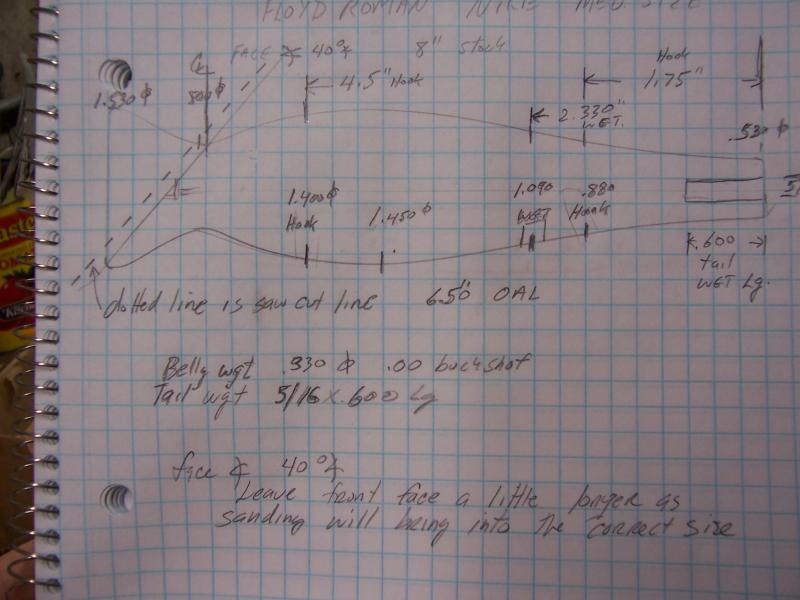 FLOYD ROMAN NIKE MED SIZE
FACE 40° 8" stock
Hook
4.5" Hook
1.75"
1.530 ϕ
.800 ϕ
2.330"
WGT.
.530 ϕ
1.400 ϕ
Hook
1.450 ϕ
1.090
WGT
.880
Hook
.600
tail
WGT Lg.
dotted line is saw cut line 6.50 OAL
Belly wgt .330 ϕ .00 buckshot
Tail wgt 5/16 x .600 Lg
face ∡ 40°
Leave front face a little longer as
sanding will bring into the correct size